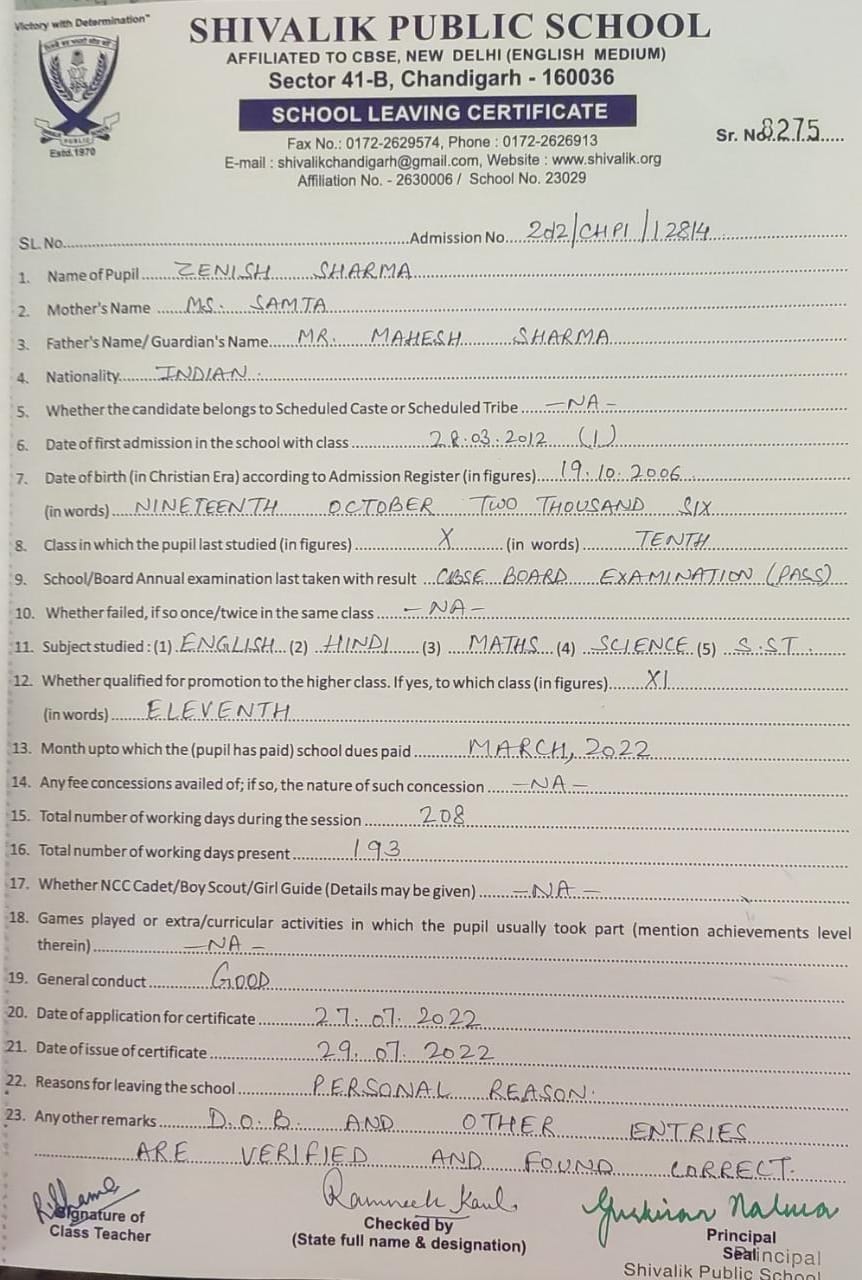 Victory with Determination"
SHIVALIK PUBLIC SCHOOL
AFFILIATED TO CBSE, NEW DELHI (ENGLISH MEDIUM)
Sector 41-B, Chandigarh - 160036
SCHOOL LEAVING CERTIFICATE
Estd. 1970
Fax No.: 0172-2629574, Phone : 0172-2626913
E-mail : shivalikchandigarh@gmail.com, Website : www.shivalik.org
Affiliation No. - 2630006 / School No. 23029
Sr. No. 8275
SL. No. Admission No. 2d2/CHPI/12814
1. Name of Pupil ZENISH SHARMA
2. Mother's Name MS. SAMTA
3. Father's Name/ Guardian's Name MR. MAHESH SHARMA
4. Nationality INDIAN.
5. Whether the candidate belongs to Scheduled Caste or Scheduled Tribe -NA-
6. Date of first admission in the school with class 28.03.2012 (I)
7. Date of birth (in Christian Era) according to Admission Register (in figures) 19.10.2006
(in words) NINETEENTH OCTOBER TWO THOUSAND SIX
8. Class in which the pupil last studied (in figures) X (in words) TENTH
9. School/Board Annual examination last taken with result CBSE BOARD EXAMINATION (PASS)
10. Whether failed, if so once/twice in the same class -NA-
11. Subject studied : (1) ENGLISH (2) HINDI (3) MATHS (4) SCIENCE (5) S.ST.
12. Whether qualified for promotion to the higher class. If yes, to which class (in figures) XI
(in words) ELEVENTH
13. Month upto which the (pupil has paid) school dues paid MARCH, 2022
14. Any fee concessions availed of; if so, the nature of such concession -NA-
15. Total number of working days during the session 208
16. Total number of working days present 193
17. Whether NCC Cadet/Boy Scout/Girl Guide (Details may be given) -NA-
18. Games played or extra/curricular activities in which the pupil usually took part (mention achievements level
therein) -NA-
19. General conduct GOOD
20. Date of application for certificate 27.07.2022
21. Date of issue of certificate 29.07.2022
22. Reasons for leaving the school PERSONAL REASON.
23. Any other remarks D.O.B. AND OTHER ENTRIES
ARE VERIFIED AND FOUND CORRECT.
Ramneek Kaul
Signature of
Class Teacher
Checked by
(State full name & designation)
Principal
Seal
Principal
Shivalik Public School